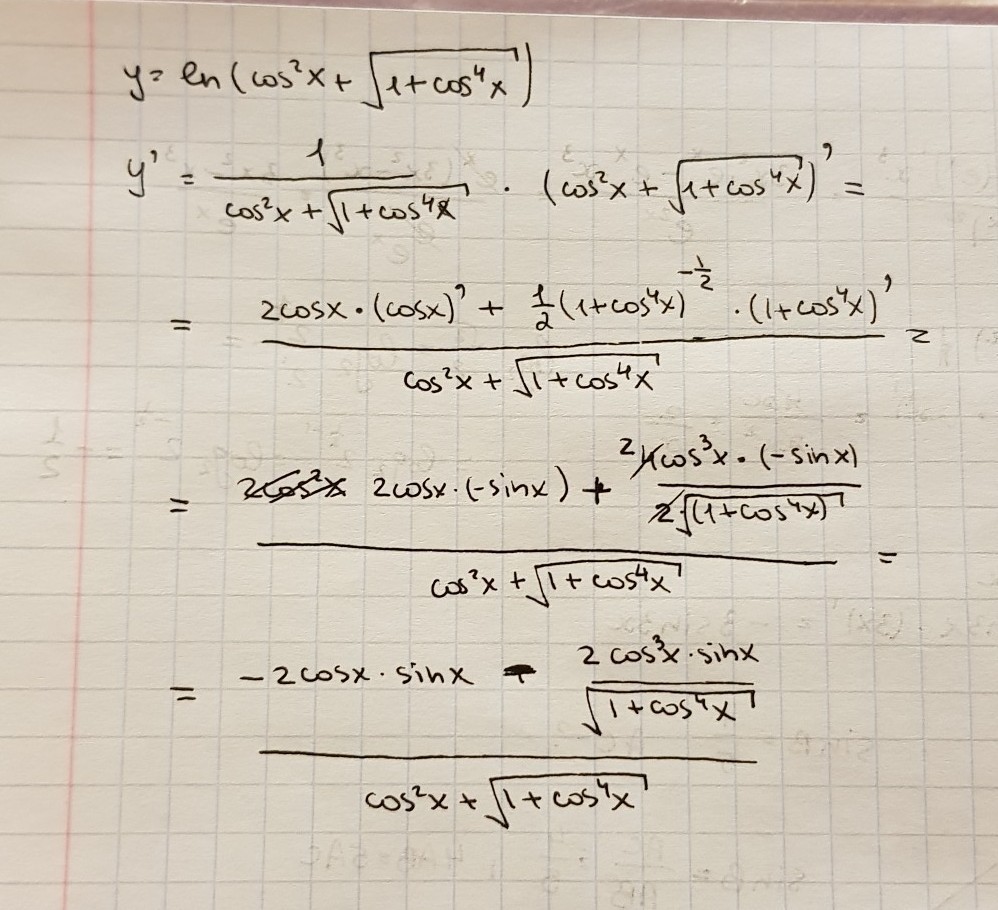 y = ln(cos²x + √(1+cos⁴x))
y' = 1/(cos²x + √(1+cos⁴x)) · (cos²x + √(1+cos⁴x))' =
= (2cosx·(cosx)' + ½(1+cos⁴x)^(-½)·(1+cos⁴x)')/(cos²x + √(1+cos⁴x)) =
= (2cosx·(-sinx) + 2cos³x·(-sinx)/√(1+cos⁴x))/(cos²x + √(1+cos⁴x)) =
= (-2cosx·sinx - 2cos³x·sinx/√(1+cos⁴x))/(cos²x + √(1+cos⁴x))